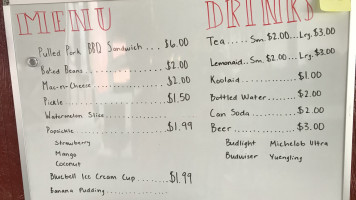 MENU
Pulled Pork BBQ Sandwich... $6.00
Baked Beans................ $2.00
Mac-n-Cheese............... $2.00
Pickle..................... $1.50
Watermelon Slice...........
Popsickle.................. $1.99
Strawberry
Mango
Coconut
Bluebell Ice Cream Cup.... $1.99
Banana Pudding............
DRINKS
Tea..... Sm. $2.00... Lrg. $3.00
Lemonaid.. Sm. $2.00... Lrg. $3.00
Koolaid............ $1.00
Bottled Water....... $2.00
Can Soda........... $2.00
Beer............... $3.00
Budlight Michelob Ultra
Budwiser Yuengling